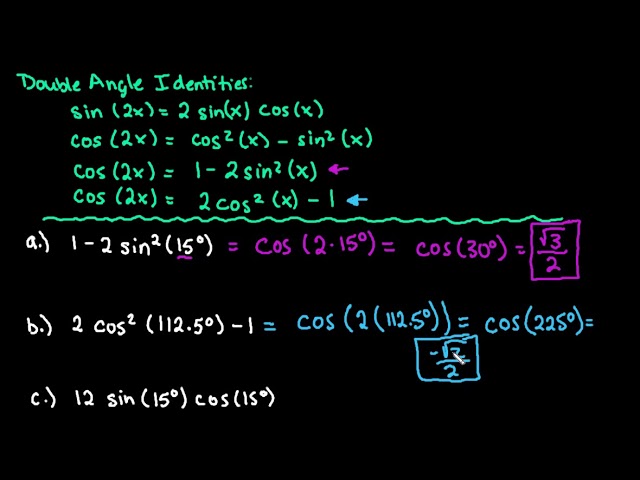 Double Angle Identities:
sin (2x) = 2 sin(x) cos(x)
cos (2x) = cos²(x) - sin²(x)
cos (2x) = 1 - 2 sin²(x) ←
cos (2x) = 2 cos²(x) - 1 ←
a.) 1 - 2 sin²(15°) = cos (2·15°) = cos(30°) = √3/2
b.) 2 cos² (112.5°) - 1 = cos (2(112.5°)) = cos(225°) =
-√2/2
c.) 12 sin(15°) cos(15°)